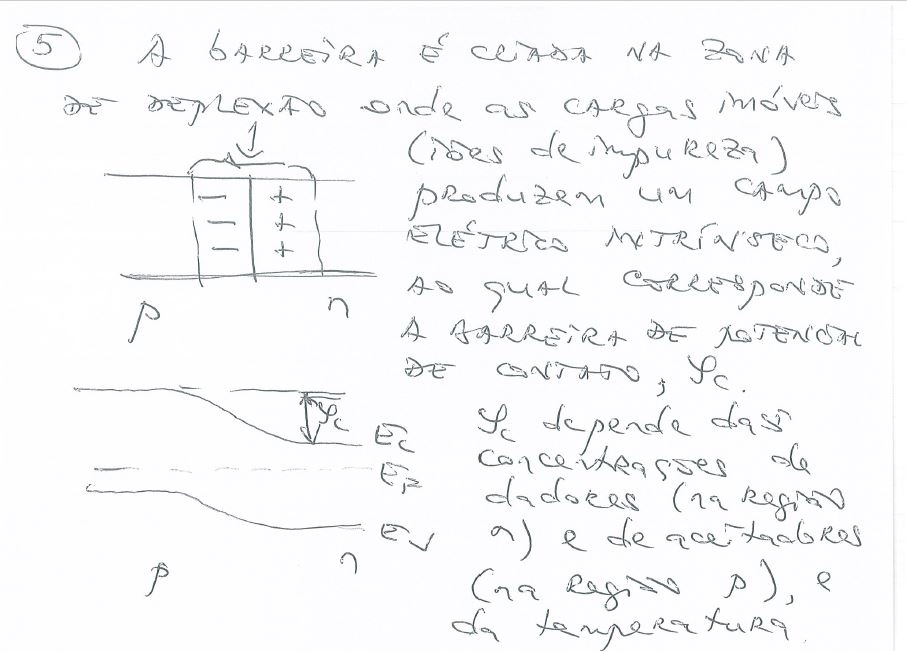 5 A BARREIRA É CRIADA NA ZONA
DE DEPLEXÃO onde as CARgas imóveis
(iões de impuREZA)
produzem um CAMPO
ELÉTRICO INTRÍNSECO,
AO QUAL CORRESPONDE
A BARREIRA DE POTENCIAL
DE CONTATO, φc.
− +
− +
− +
p n
φc
Ec
EF
Ev
p n
φc depende das
concentrações de
dadores (na Região
n) e de aceitadores
(na Região p), e
da temperatura.